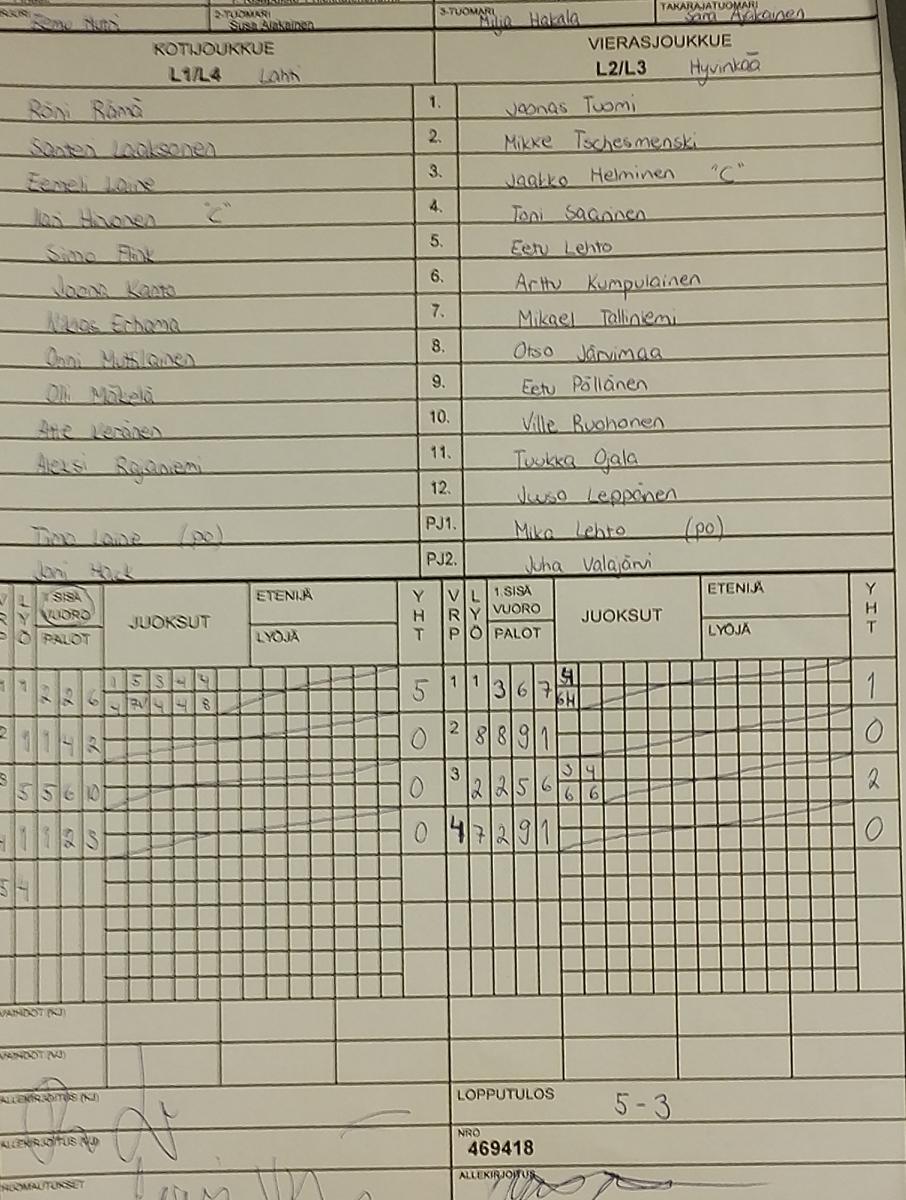 2-TUOMARI 3-TUOMARI TAKARAJATUOMARI
Susa Milja Hakala
KOTIJOUKKUE VIERASJOUKKUE
L1/L4 Lahti L2/L3 Hyvinkää
Roni Rämä 1. Joonas Tuomi
Santeri Laaksonen 2. Mikke Tschesmenski
Eemeli Laine 3. Jaakko Helminen "C"
Hirvonen "C" 4. Toni Saarinen
Simo Flink 5. Eetu Lehto
Joona Kanto 6. Arttu Kumpulainen
Niklas 7. Mikael Talliniemi
Onni Mutilainen 8. Otso Järvimaa
Olli Mäkelä 9. Eetu Pöllänen
Atte Keränen 10. Ville Ruohonen
Aleksi Rajaniemi 11. Tuukka Ojala
12. Juuso Leppänen
Timo Laine (po) PJ1. Mika Lehto (po)
Jani PJ2. Juha Valajärvi
VRP LYÖ 1.SISÄ VUORO PALOT JUOKSUT ETENIJÄ LYÖJÄ YHT VRP LYÖ 1.SISÄ VUORO PALOT JUOKSUT ETENIJÄ LYÖJÄ YHT
1 1 2 2 6 1 5 3 4 4 5 1 1 3 6 7 1
4 7V 4 4 8 6H
2 9 9 4 2 0 2 8 8 9 1 0
3 5 5 6 10 0 3 2 2 5 6 3 4 2
6 6
4 1 1 2 3 0 4 7 2 9 1 0
5 4
VAIHDOT (KJ)
VAIHDOT (VJ)
ALLEKIRJOITUS (KJ) LOPPUTULOS 5-3
ALLEKIRJOITUS (VJ) NRO 469418
HUOMAUTUKSET ALLEKIRJOITUS